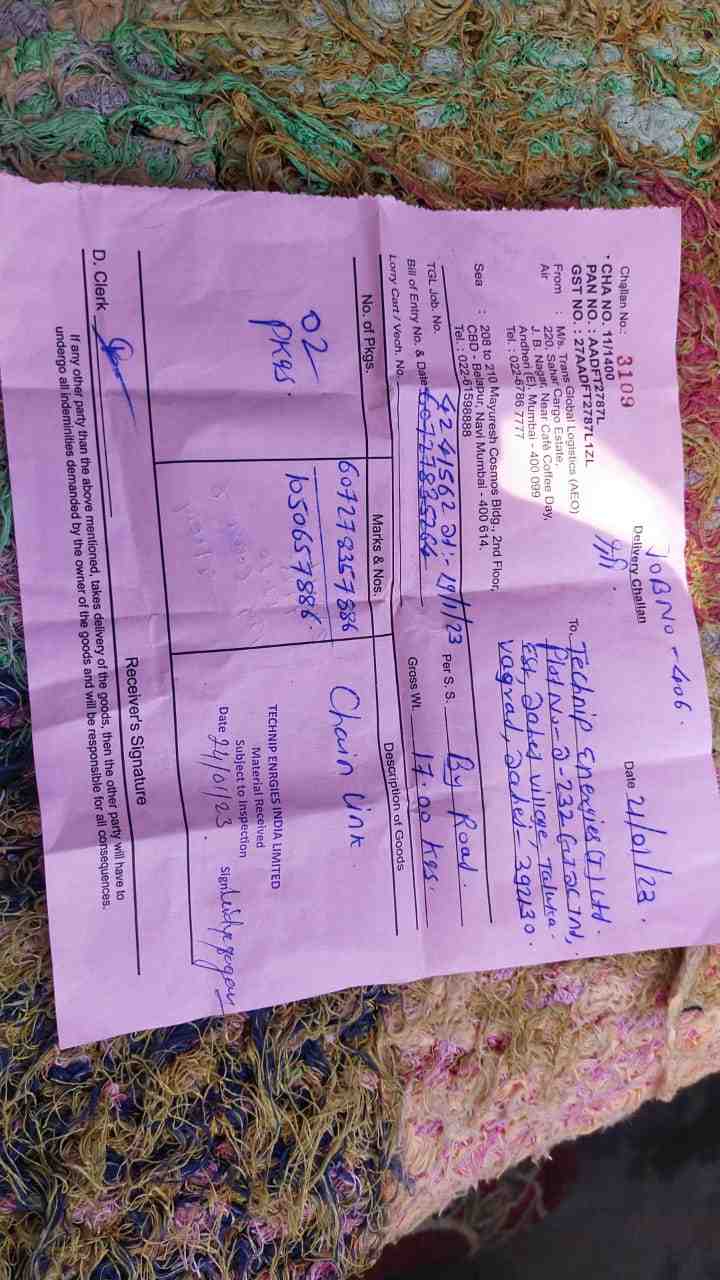 JOB No - 406.
Challan No.: 3109
Delivery Challan
Date 21/01/23.
• CHA NO. 11/1400
PAN NO. : AADFT2787L
GST NO. : 27AADFT2787L1ZL
From : M/s. Trans Global Logistics (AEO)
Air 220, Sahar Cargo Estate,
J. B. Nagar, Near Café Coffee Day,
Andheri (E), Mumbai - 400 099
Tel. : 022-6786 7777
Sea : 208 to 210 Mayuresh Cosmos Bldg., 2nd Floor,
CBD - Belapur, Navi Mumbai - 400 614.
Tel. : 022-61598888
To Technip Energies (I) Ltd.
Plot No - Z - 232 GIDC Ind,
Est, Dahej village, Taluka
Vagral, Dahej - 392130.
TGL Job. No.
Bill of Entry No. & Date 4241562 dt:- 19/1/23 Per S. S. By Road.
Lorry Cart / Vech. No. Gross Wt. 17.00 Kgs.
No. of Pkgs. Marks & Nos. Description of Goods
02 607278357886 Chain Link
PKgs. 1050657886
TECHNIP ENRGIES INDIA LIMITED
Material Received
Subject to Inspection
Date 24/01/23. Sign
D. Clerk
Receiver's Signature
If any other party than the above mentioned, takes delivery of the goods, then the other party will have to
undergo all indeminities demanded by the owner of the goods and will be responsible for all consequences.